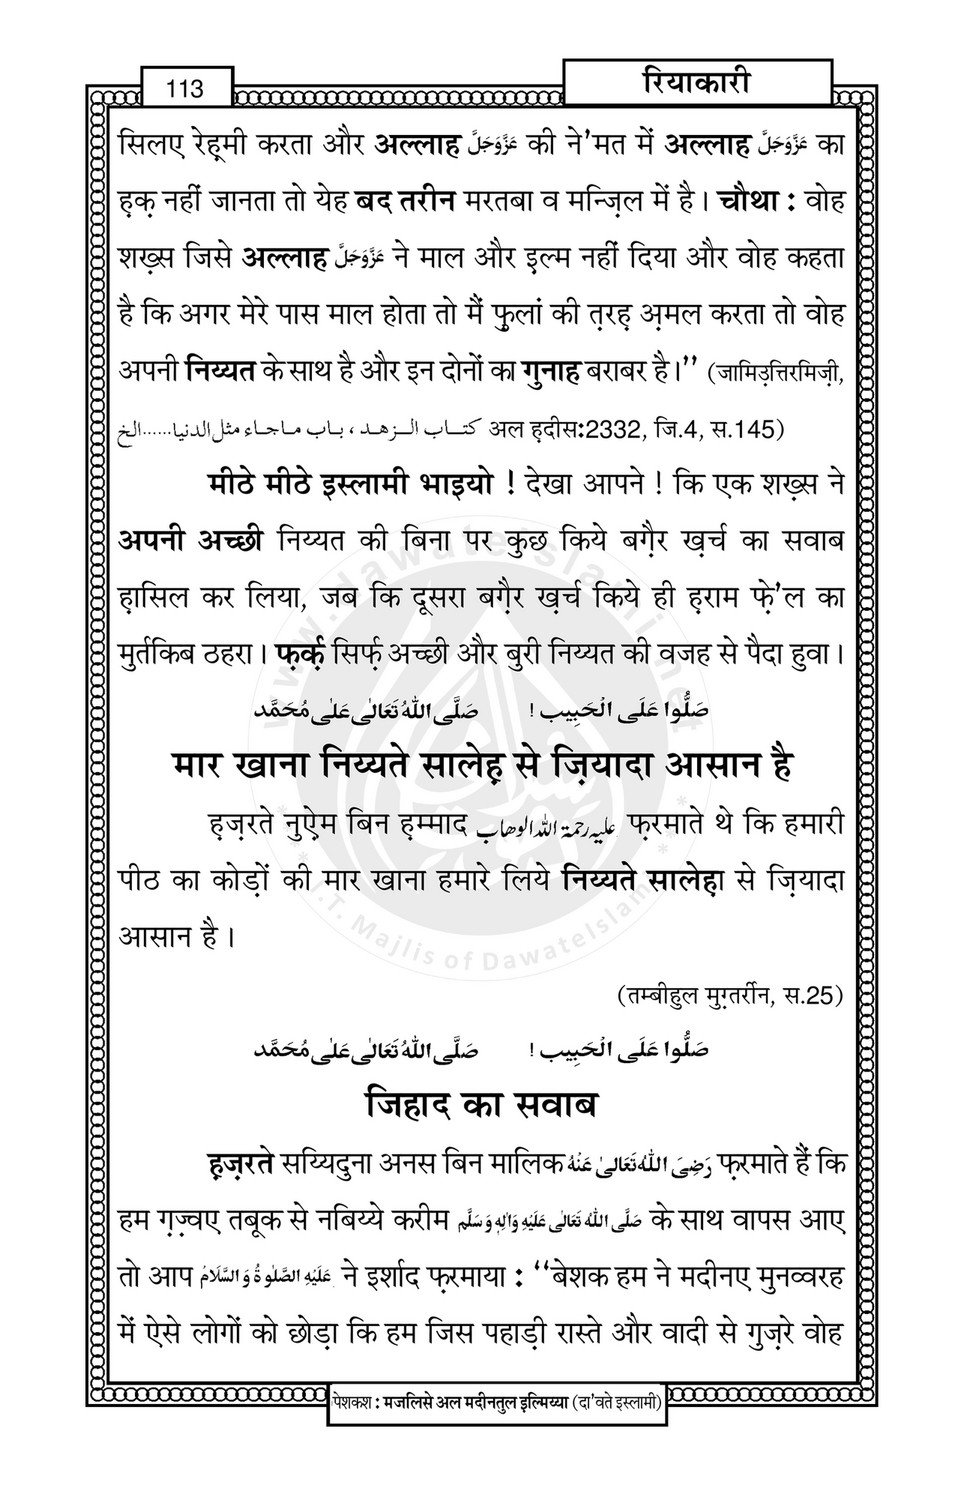 113
रियाकारी
सिलए रेह़मी करता और अल्लाह عَزَّوَجَلَّ की ने'मत में अल्लाह عَزَّوَجَلَّ का
ह़क़ नहीं जानता तो येह बद तरीन मरतबा व मन्ज़िल में है। चौथा : वोह
शख़्स जिसे अल्लाह عَزَّوَجَلَّ ने माल और इ़ल्म नहीं दिया और वोह कहता
है कि अगर मेरे पास माल होता तो मैं फ़ुलां की त़रह़ अ़मल करता तो वोह
अपनी निय्यत के साथ है और इन दोनों का गुनाह बराबर है।'' (जामिउ़त्तिरमिज़ी,
کتاب الزهد ، باب ماجاء مثل الدنیا......الخ अल ह़दीस:2332, जि.4, स.145)
मीठे मीठे इस्लामी भाइयो ! देखा आपने ! कि एक शख़्स ने
अपनी अच्छी निय्यत की बिना पर कुछ किये बग़ैर ख़र्च का सवाब
ह़ासिल कर लिया, जब कि दूसरा बग़ैर ख़र्च किये ही ह़राम फ़े'ल का
मुर्तकिब ठहरा। फ़र्क़ सिर्फ़ अच्छी और बुरी निय्यत की वजह से पैदा हुवा।
صَلُّوا عَلَى الْحَبِيب ! صَلَّى اللّٰهُ تَعَالٰى عَلٰى مُحَمَّد
मार खाना निय्यते सालेह़ से ज़ियादा आसान है
ह़ज़रते नुऐ़म बिन ह़म्माद علیہ رحمۃ اللہ الوھاب फ़रमाते थे कि हमारी
पीठ का कोड़ों की मार खाना हमारे लिये निय्यते सालेह़ा से ज़ियादा
आसान है।
(तम्बीहुल मुग़्तर्रीन, स.25)
صَلُّوا عَلَى الْحَبِيب ! صَلَّى اللّٰهُ تَعَالٰى عَلٰى مُحَمَّد
जिहाद का सवाब
ह़ज़रते सय्यिदुना अनस बिन मालिक رَضِیَ اللّٰهُ تَعَالىٰ عَنْهُ फ़रमाते हैं कि
हम ग़ज़्वए तबूक से नबिय्ये करीम صَلَّى اللّٰهُ تَعَالٰى عَلَيْهِ وَاٰلِهٖ وَسَلَّم के साथ वापस आए
तो आप عَلَيْهِ الصَّلٰوةُ وَالسَّلَام ने इर्शाद फ़रमाया : ''बेशक हम ने मदीनए मुनव्वरह
में ऐसे लोगों को छोड़ा कि हम जिस पहाड़ी रास्ते और वादी से गुज़रे वोह
पेशकश : मजलिसे अल मदीनतुल इ़ल्मिय्या (दा'वते इस्लामी)
www.dawateislami.net
I.T. Majlis of DawateIslami